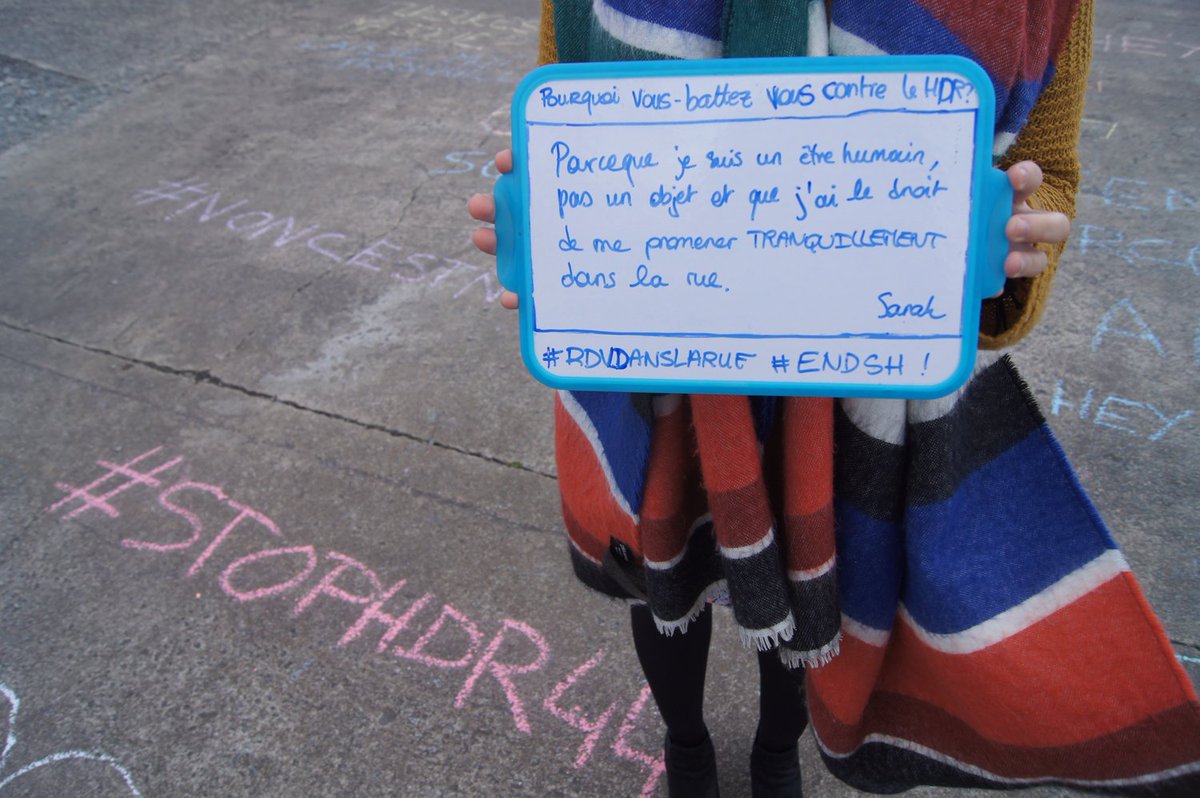 Pourquoi vous-battez vous contre le HDR?
Parceque je suis un être humain,
pas un objet et que j'ai le droit
de me promener TRANQUILLEMENT
dans la rue.
Sarah
#RDVDANSLARUE #ENDSH !
#NONCESTN
#STOPHDR44
HEY